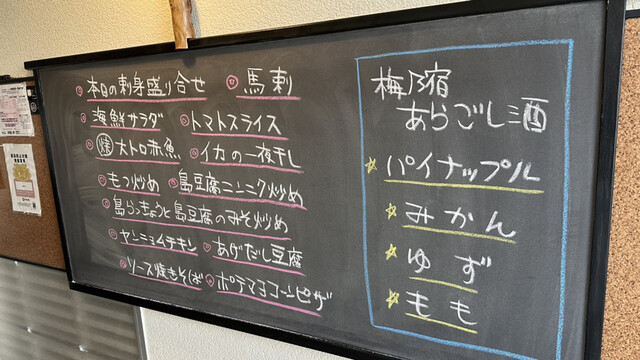 本日の刺身盛り合せ 馬刺
海鮮サラダ トマトスライス
大トロ赤魚 イカの一夜干し
もつ炒め 島豆腐ニンニク炒め
島らっきょうと島豆腐のみそ炒め
ヤンニョムチキン あげだし豆腐
ソース焼きそば ポテマヨコーンピザ
梅乃宿
あらごし酒
パイナップル
みかん
ゆず
もも